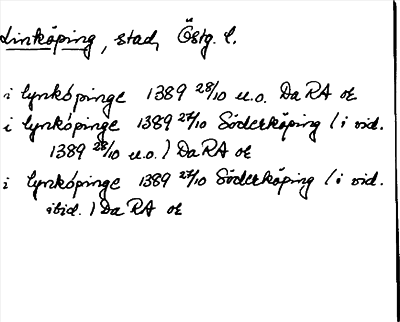 Linköping, stad, Östg. l.
i lynkøpinge 1389 28/10 u.o. DaRA or
i lynkøpinge 1389 27/10 Söderköping (i vid.
1389 28/10 u.o.) DaRA or
i lynkøpinge 1389 27/10 Söderköping (i vid.
ibid.) DaRA or